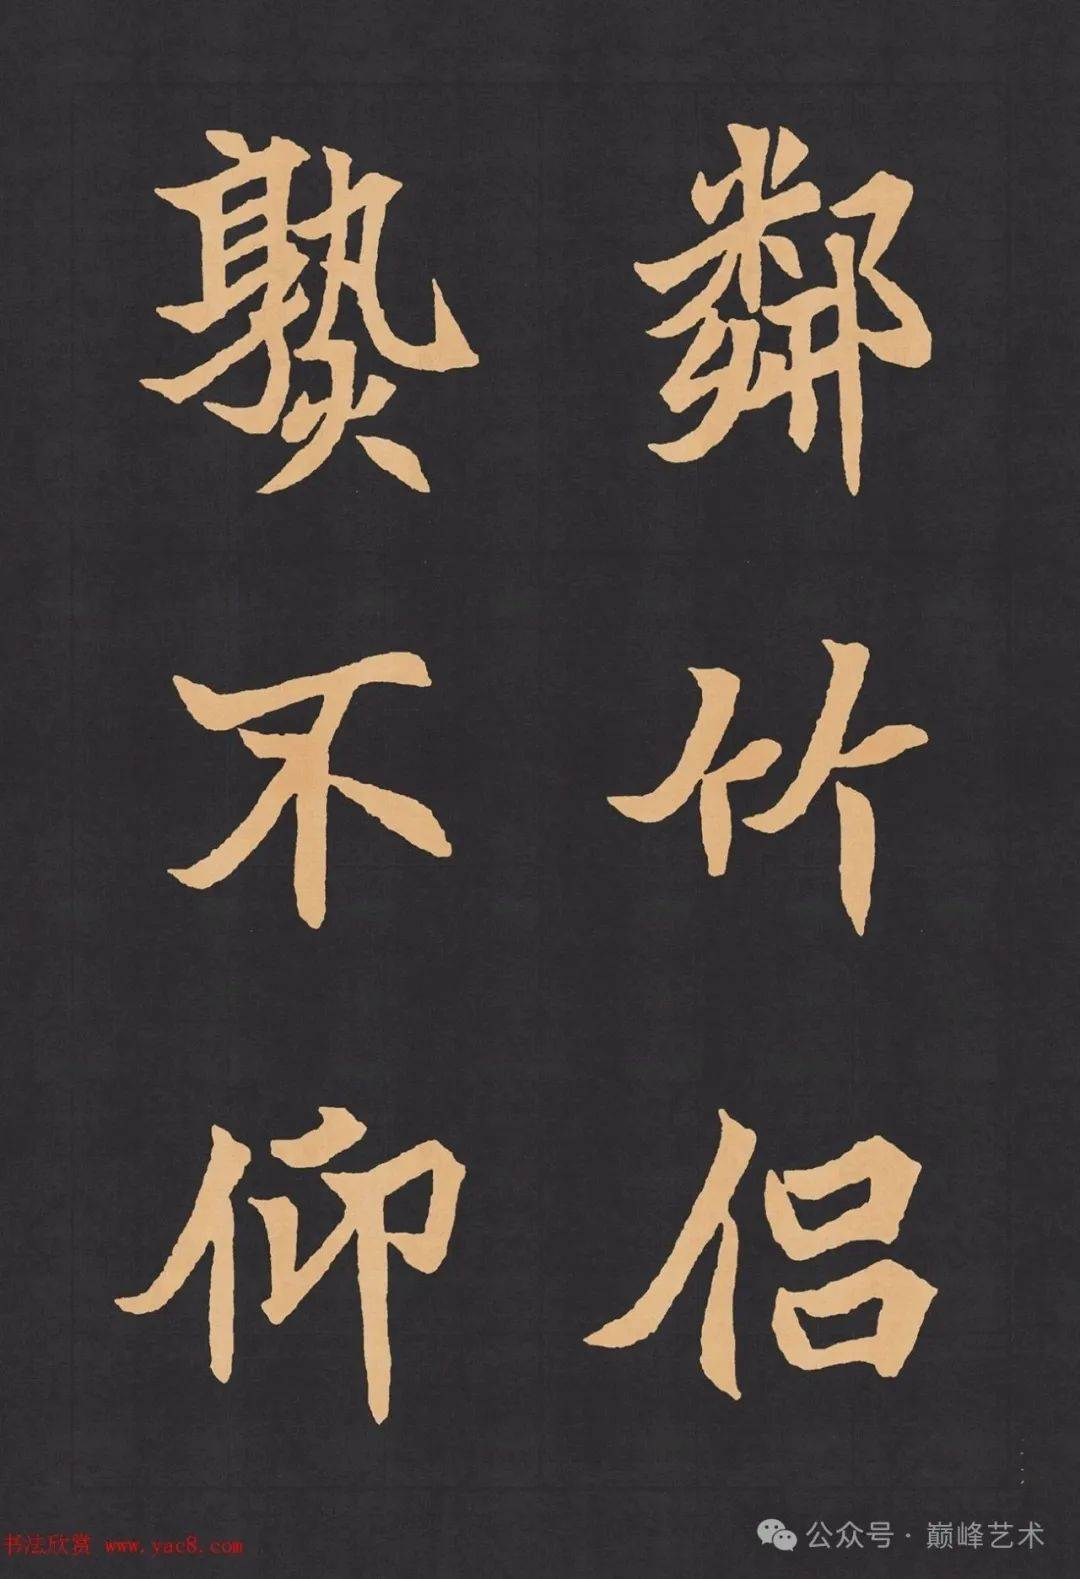 鄰竹侣
熟不仰
书法欣赏 www.yac8.com
公众号·巅峰艺术